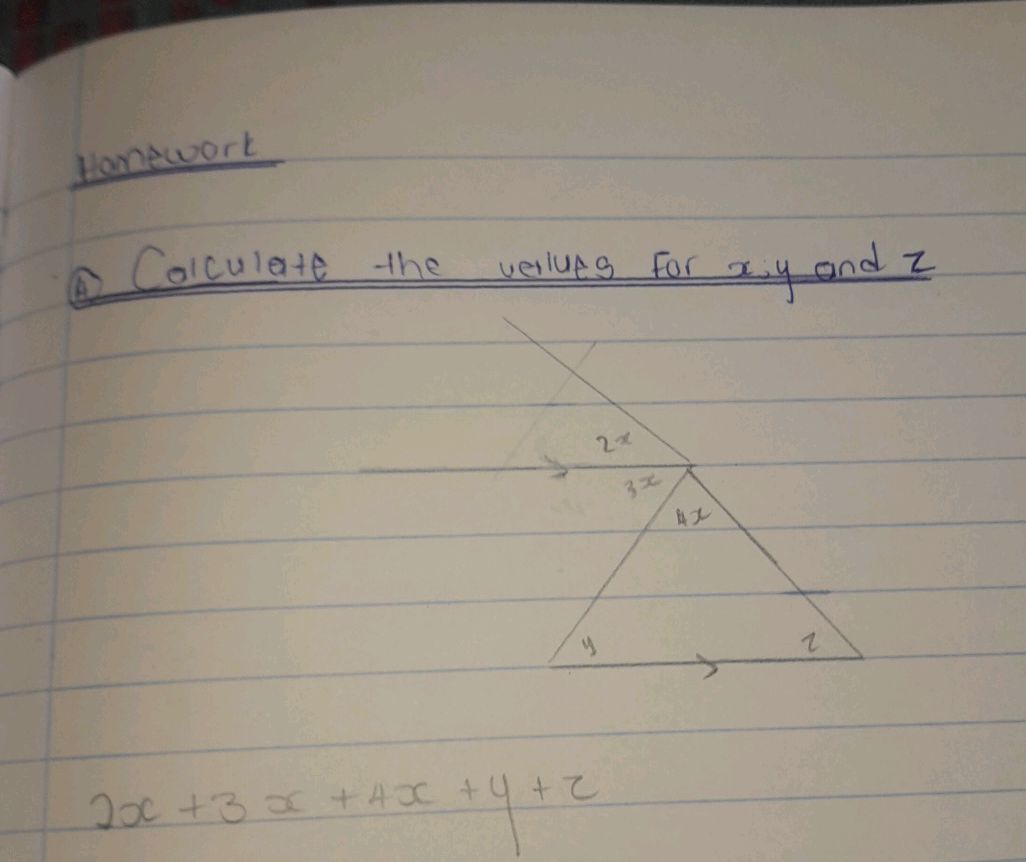 Homework
A) Calculate the values for x, y and z
2x
3x
4x
y
z
2x + 3x + 4x + y + z